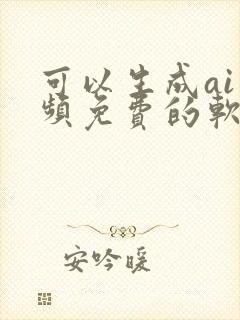 可以生成ai
頻免費的軟
安吟暖